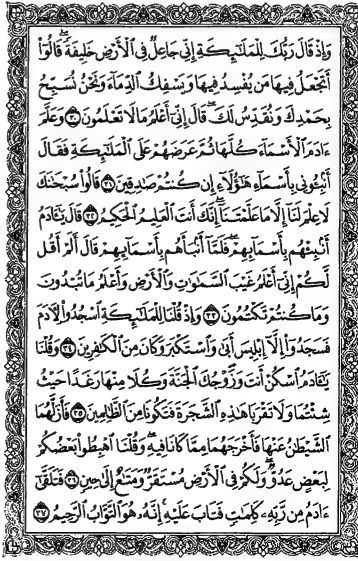 وَإِذْ قَالَ رَبُّكَ لِلْمَلَٰٓئِكَةِ إِنِّي جَاعِلٌ فِي ٱلْأَرْضِ خَلِيفَةً ۖ قَالُوٓاْ
أَتَجْعَلُ فِيهَا مَن يُفْسِدُ فِيهَا وَيَسْفِكُ ٱلدِّمَآءَ وَنَحْنُ نُسَبِّحُ
بِحَمْدِكَ وَنُقَدِّسُ لَكَ ۖ قَالَ إِنِّيٓ أَعْلَمُ مَا لَا تَعْلَمُونَ ٣٠ وَعَلَّمَ
ءَادَمَ ٱلْأَسْمَآءَ كُلَّهَا ثُمَّ عَرَضَهُمْ عَلَى ٱلْمَلَٰٓئِكَةِ فَقَالَ
أَنۢبِـُٔونِي بِأَسْمَآءِ هَٰٓؤُلَآءِ إِن كُنتُمْ صَٰدِقِينَ ٣١ قَالُواْ سُبْحَٰنَكَ
لَا عِلْمَ لَنَآ إِلَّا مَا عَلَّمْتَنَآ ۖ إِنَّكَ أَنتَ ٱلْعَلِيمُ ٱلْحَكِيمُ ٣٢ قَالَ يَٰٓـَٔادَمُ
أَنۢبِئْهُم بِأَسْمَآئِهِمْ ۖ فَلَمَّآ أَنۢبَأَهُم بِأَسْمَآئِهِمْ قَالَ أَلَمْ أَقُل
لَّكُمْ إِنِّيٓ أَعْلَمُ غَيْبَ ٱلسَّمَٰوَٰتِ وَٱلْأَرْضِ وَأَعْلَمُ مَا تُبْدُونَ
وَمَا كُنتُمْ تَكْتُمُونَ ٣٣ وَإِذْ قُلْنَا لِلْمَلَٰٓئِكَةِ ٱسْجُدُواْ لِأٓدَمَ
فَسَجَدُوٓاْ إِلَّآ إِبْلِيسَ أَبَىٰ وَٱسْتَكْبَرَ وَكَانَ مِنَ ٱلْكَٰفِرِينَ ٣٤ وَقُلْنَا
يَٰٓـَٔادَمُ ٱسْكُنْ أَنتَ وَزَوْجُكَ ٱلْجَنَّةَ وَكُلَا مِنْهَا رَغَدًا حَيْثُ
شِئْتُمَا وَلَا تَقْرَبَا هَٰذِهِ ٱلشَّجَرَةَ فَتَكُونَا مِنَ ٱلظَّٰلِمِينَ ٣٥ فَأَزَلَّهُمَا
ٱلشَّيْطَٰنُ عَنْهَا فَأَخْرَجَهُمَا مِمَّا كَانَا فِيهِ ۖ وَقُلْنَا ٱهْبِطُواْ بَعْضُكُمْ
لِبَعْضٍ عَدُوٌّ ۖ وَلَكُمْ فِي ٱلْأَرْضِ مُسْتَقَرٌّ وَمَتَٰعٌ إِلَىٰ حِينٍ ٣٦ فَتَلَقَّىٰٓ
ءَادَمُ مِن رَّبِّهِۦ كَلِمَٰتٍ فَتَابَ عَلَيْهِ ۚ إِنَّهُۥ هُوَ ٱلتَّوَّابُ ٱلرَّحِيمُ ٣٧